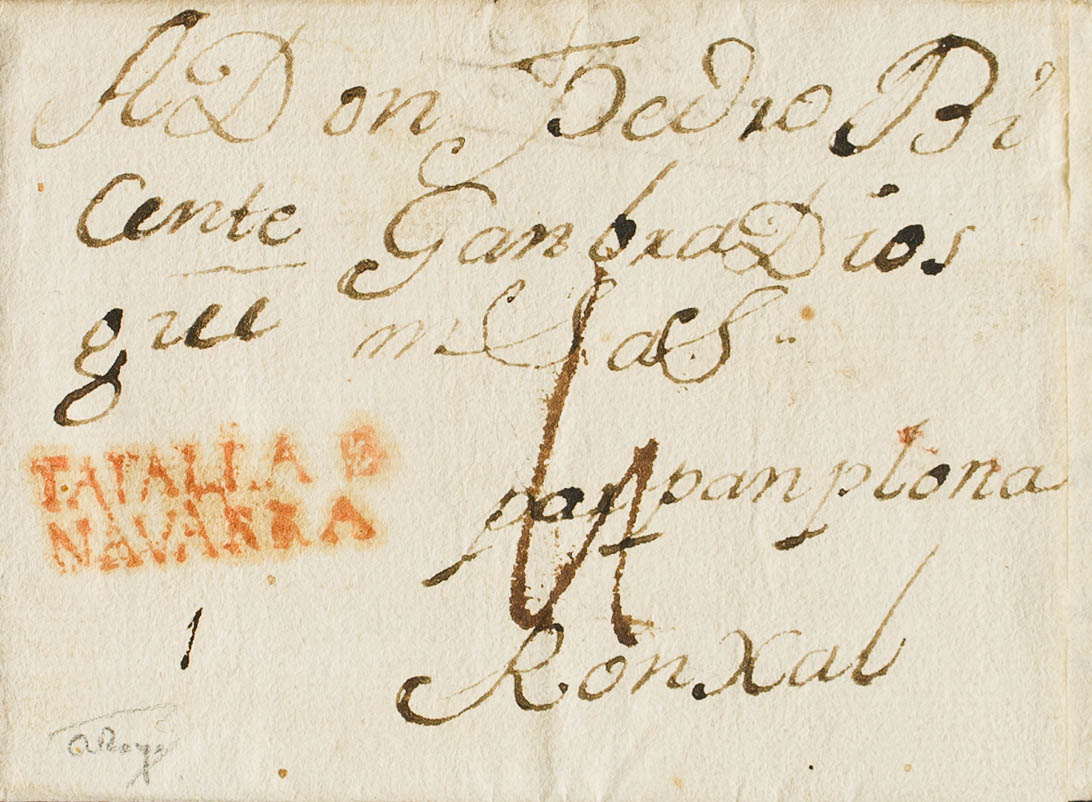 A Don Pedro Bi
cente Ganbra Dios
gue m S aS
TAFALLA
NAVARRA
por panplona
1
Ronxal